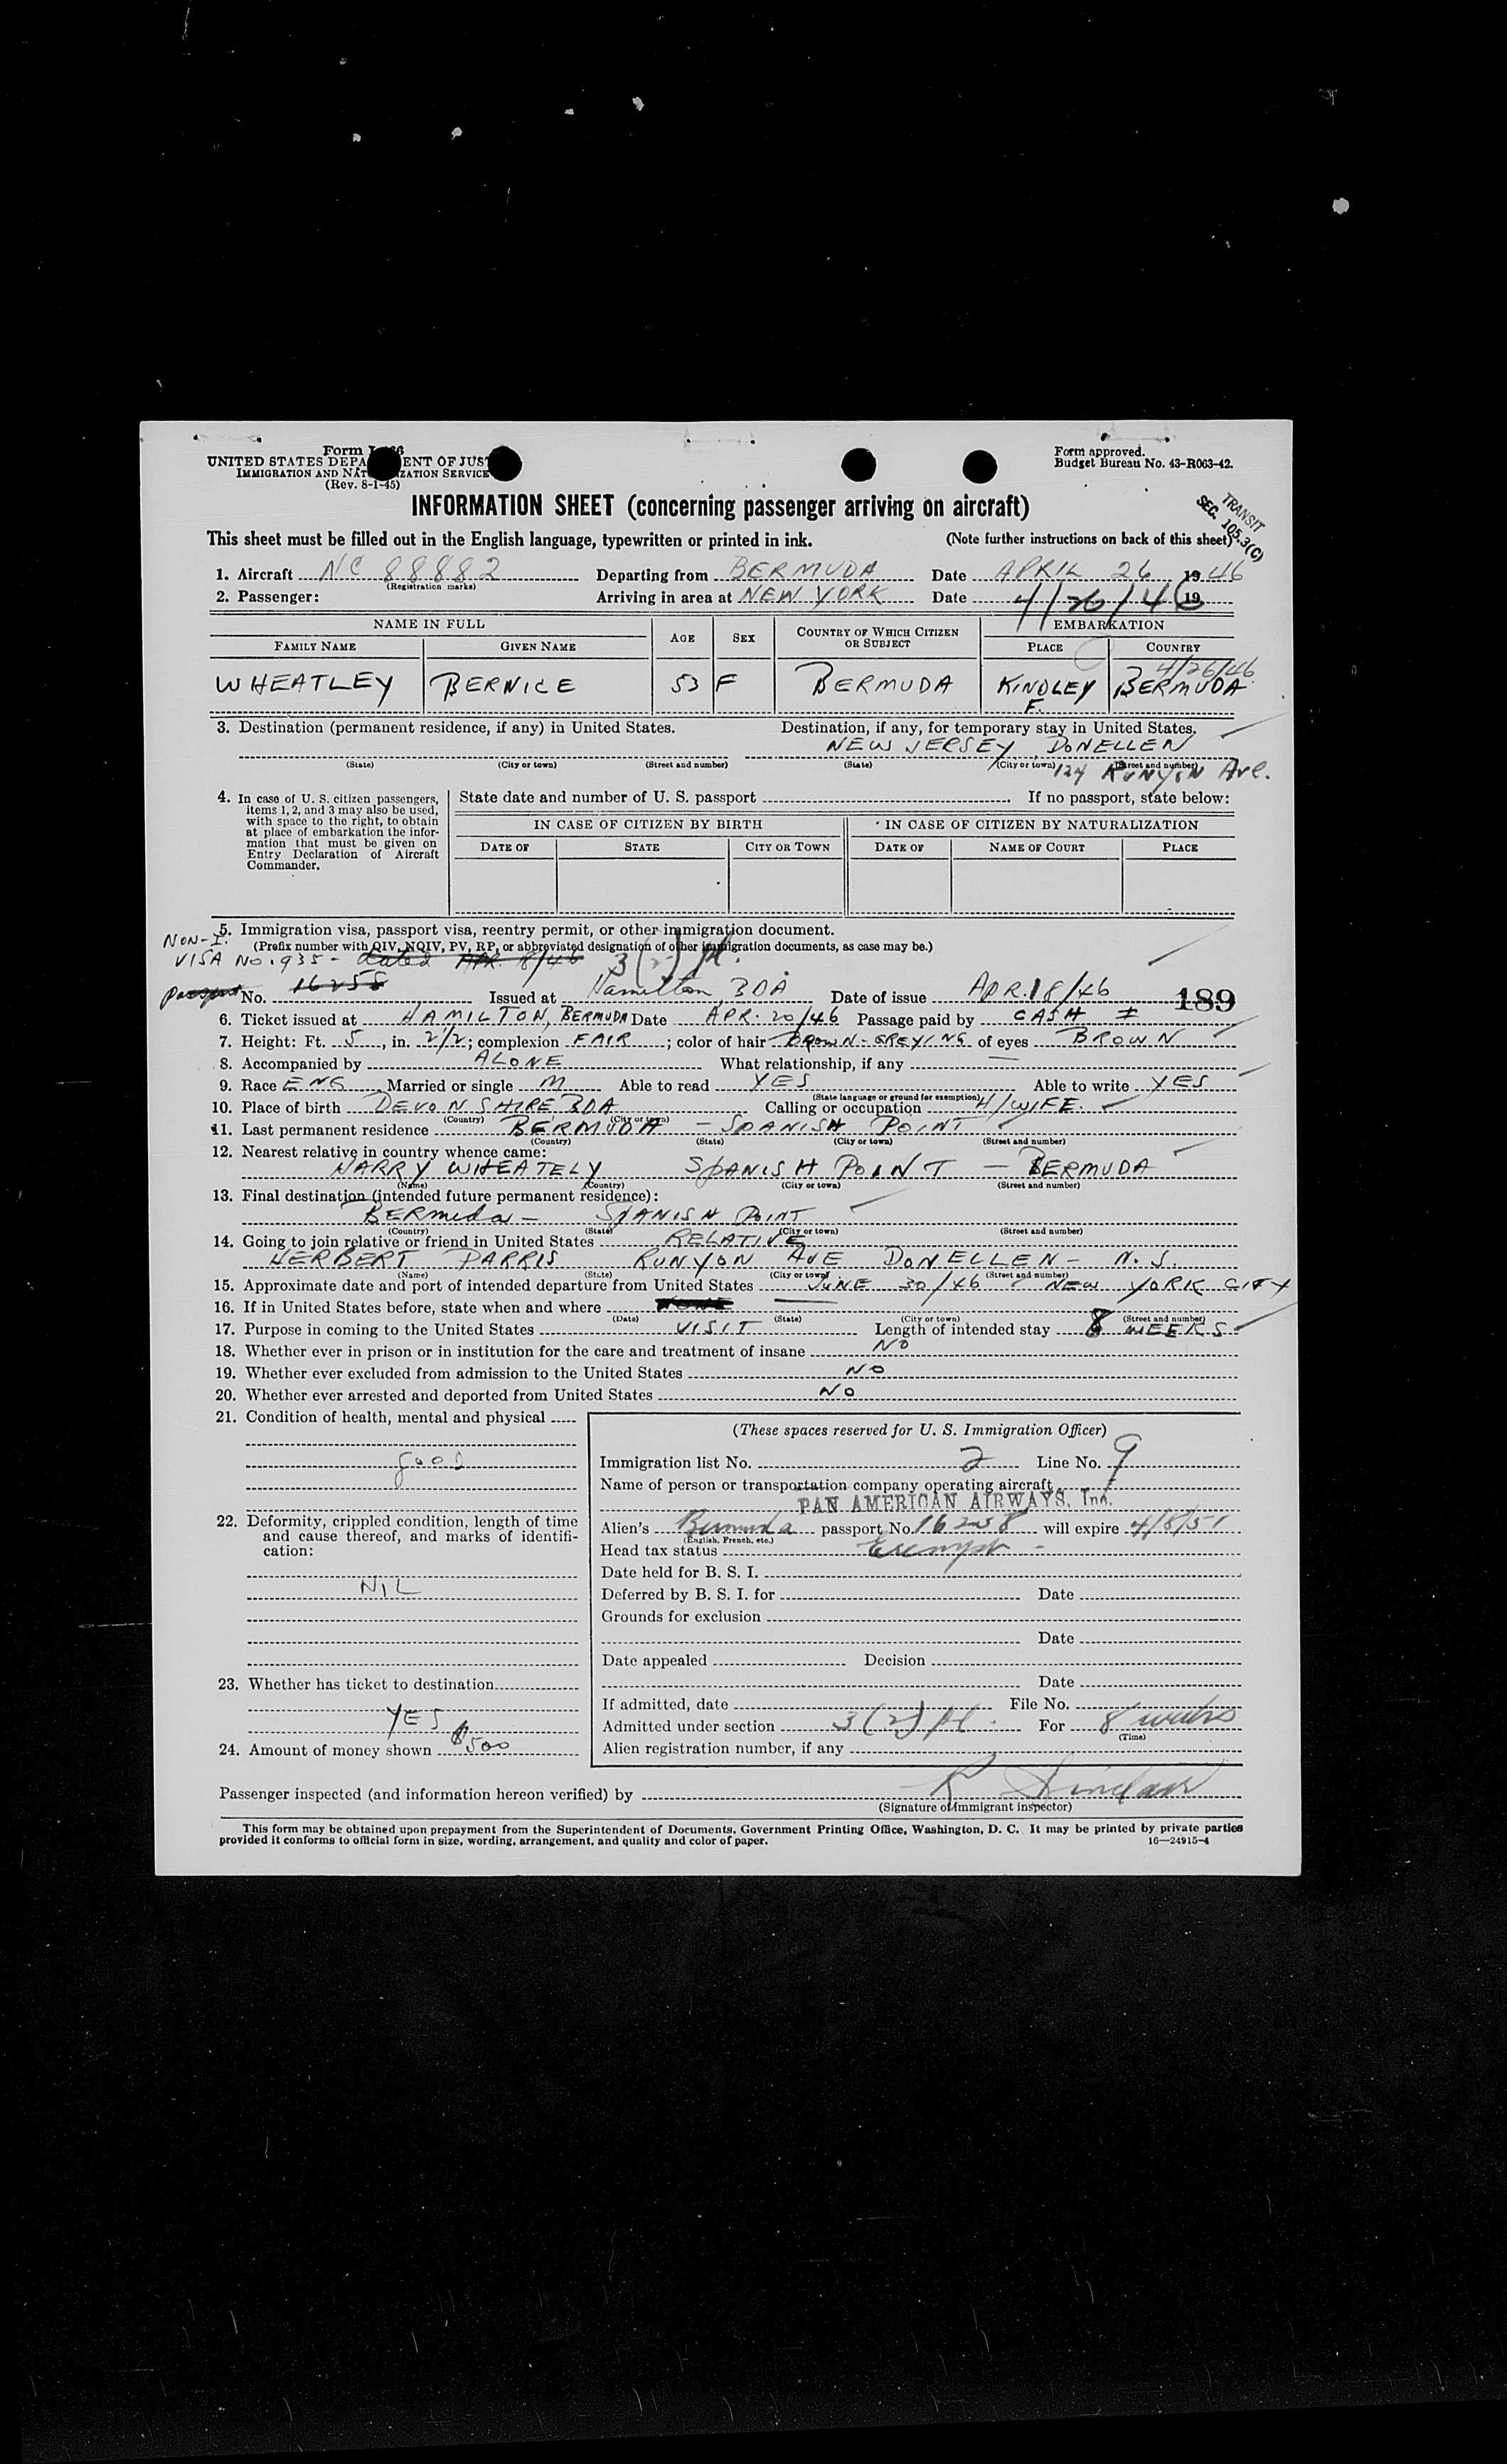 Form
UNITED STATES DEPA ENT OF JUST
IMMIGRATION AND NAT ZATION SERVICE
(Rev. 8-1-45)
Form approved.
Budget Bureau No. 43-R063-42.
INFORMATION SHEET (concerning passenger arriving on aircraft)
TRANSIT
SEC. 105.3(C)
This sheet must be filled out in the English language, typewritten or printed in ink. (Note further instructions on back of this sheet)
1. Aircraft NC 88882 Departing from BERMUDA Date APRIL 26 1946
(Registration marks)
2. Passenger: Arriving in area at NEW YORK Date 4/26/46 19
NAME IN FULL AGE SEX COUNTRY OF WHICH CITIZEN OR SUBJECT EMBARKATION
FAMILY NAME GIVEN NAME PLACE COUNTRY
4/26/46
WHEATLEY BERNICE 53 F BERMUDA KINDLEY F. BERMUDA
3. Destination (permanent residence, if any) in United States. Destination, if any, for temporary stay in United States.
NEW JERSEY DONELLEN
(State) (City or town) (Street and number) (State) (City or town) (Street and number)
124 RUNYON Ave.
4. In case of U. S. citizen passengers, items 1, 2, and 3 may also be used, with space to the right, to obtain at place of embarkation the information that must be given on Entry Declaration of Aircraft Commander.
State date and number of U. S. passport If no passport, state below:
IN CASE OF CITIZEN BY BIRTH IN CASE OF CITIZEN BY NATURALIZATION
DATE OF STATE CITY OR TOWN DATE OF NAME OF COURT PLACE
5. Immigration visa, passport visa, reentry permit, or other immigration document.
NON-I. (Prefix number with QIV, NQIV, PV, RP, or abbreviated designation of other immigration documents, as case may be.)
VISA NO. 935 - dated APR. 8/46 3(2)
passport No. 16258 Issued at Hamilton, BDA Date of issue APR. 18/46 189
6. Ticket issued at HAMILTON, BERMUDA Date APR. 20/46 Passage paid by CASH
7. Height: Ft. 5, in. 2 1/2; complexion FAIR; color of hair BROWN-GREYING of eyes BROWN
8. Accompanied by ALONE What relationship, if any —
9. Race ENG Married or single M Able to read YES Able to write YES
(State language or ground for exemption)
10. Place of birth DEVONSHIRE BDA Calling or occupation H/WIFE.
(Country) (City or town)
11. Last permanent residence BERMUDA - SPANISH POINT
(Country) (State) (City or town) (Street and number)
12. Nearest relative in country whence came:
HARRY WHEATELY SPANISH POINT — BERMUDA
(Name) (Country) (City or town) (Street and number)
13. Final destination (intended future permanent residence):
BERmuda - SPANISH POINT
(Country) (State) (City or town) (Street and number)
14. Going to join relative or friend in United States RELATIVE
HERBERT PARRIS RUNYON AVE DONELLEN - N.J.
(Name) (State) (City or town) (Street and number)
15. Approximate date and port of intended departure from United States JUNE 30/46 NEW YORK CITY
16. If in United States before, state when and where
(Date) (State) (City or town) (Street and number)
17. Purpose in coming to the United States VISIT Length of intended stay 8 WEEKS
18. Whether ever in prison or in institution for the care and treatment of insane NO
19. Whether ever excluded from admission to the United States NO
20. Whether ever arrested and deported from United States NO
21. Condition of health, mental and physical
good
22. Deformity, crippled condition, length of time and cause thereof, and marks of identification:
NIL
23. Whether has ticket to destination
YES
24. Amount of money shown $500
(These spaces reserved for U. S. Immigration Officer)
Immigration list No. 2 Line No. 9
Name of person or transportation company operating aircraft
PAN AMERICAN AIRWAYS, Inc.
Alien's Bermuda passport No. 16258 will expire 4/8/51
(English, French, etc.)
Head tax status Exempt -
Date held for B. S. I.
Deferred by B. S. I. for Date
Grounds for exclusion
Date
Date appealed Decision
Date
If admitted, date File No.
Admitted under section 3(2) For 8 weeks
(Time)
Alien registration number, if any
Passenger inspected (and information hereon verified) by R Sinclair
(Signature of Immigrant inspector)
This form may be obtained upon prepayment from the Superintendent of Documents, Government Printing Office, Washington, D. C. It may be printed by private parties
provided it conforms to official form in size, wording, arrangement, and quality and color of paper. 16—24915-4